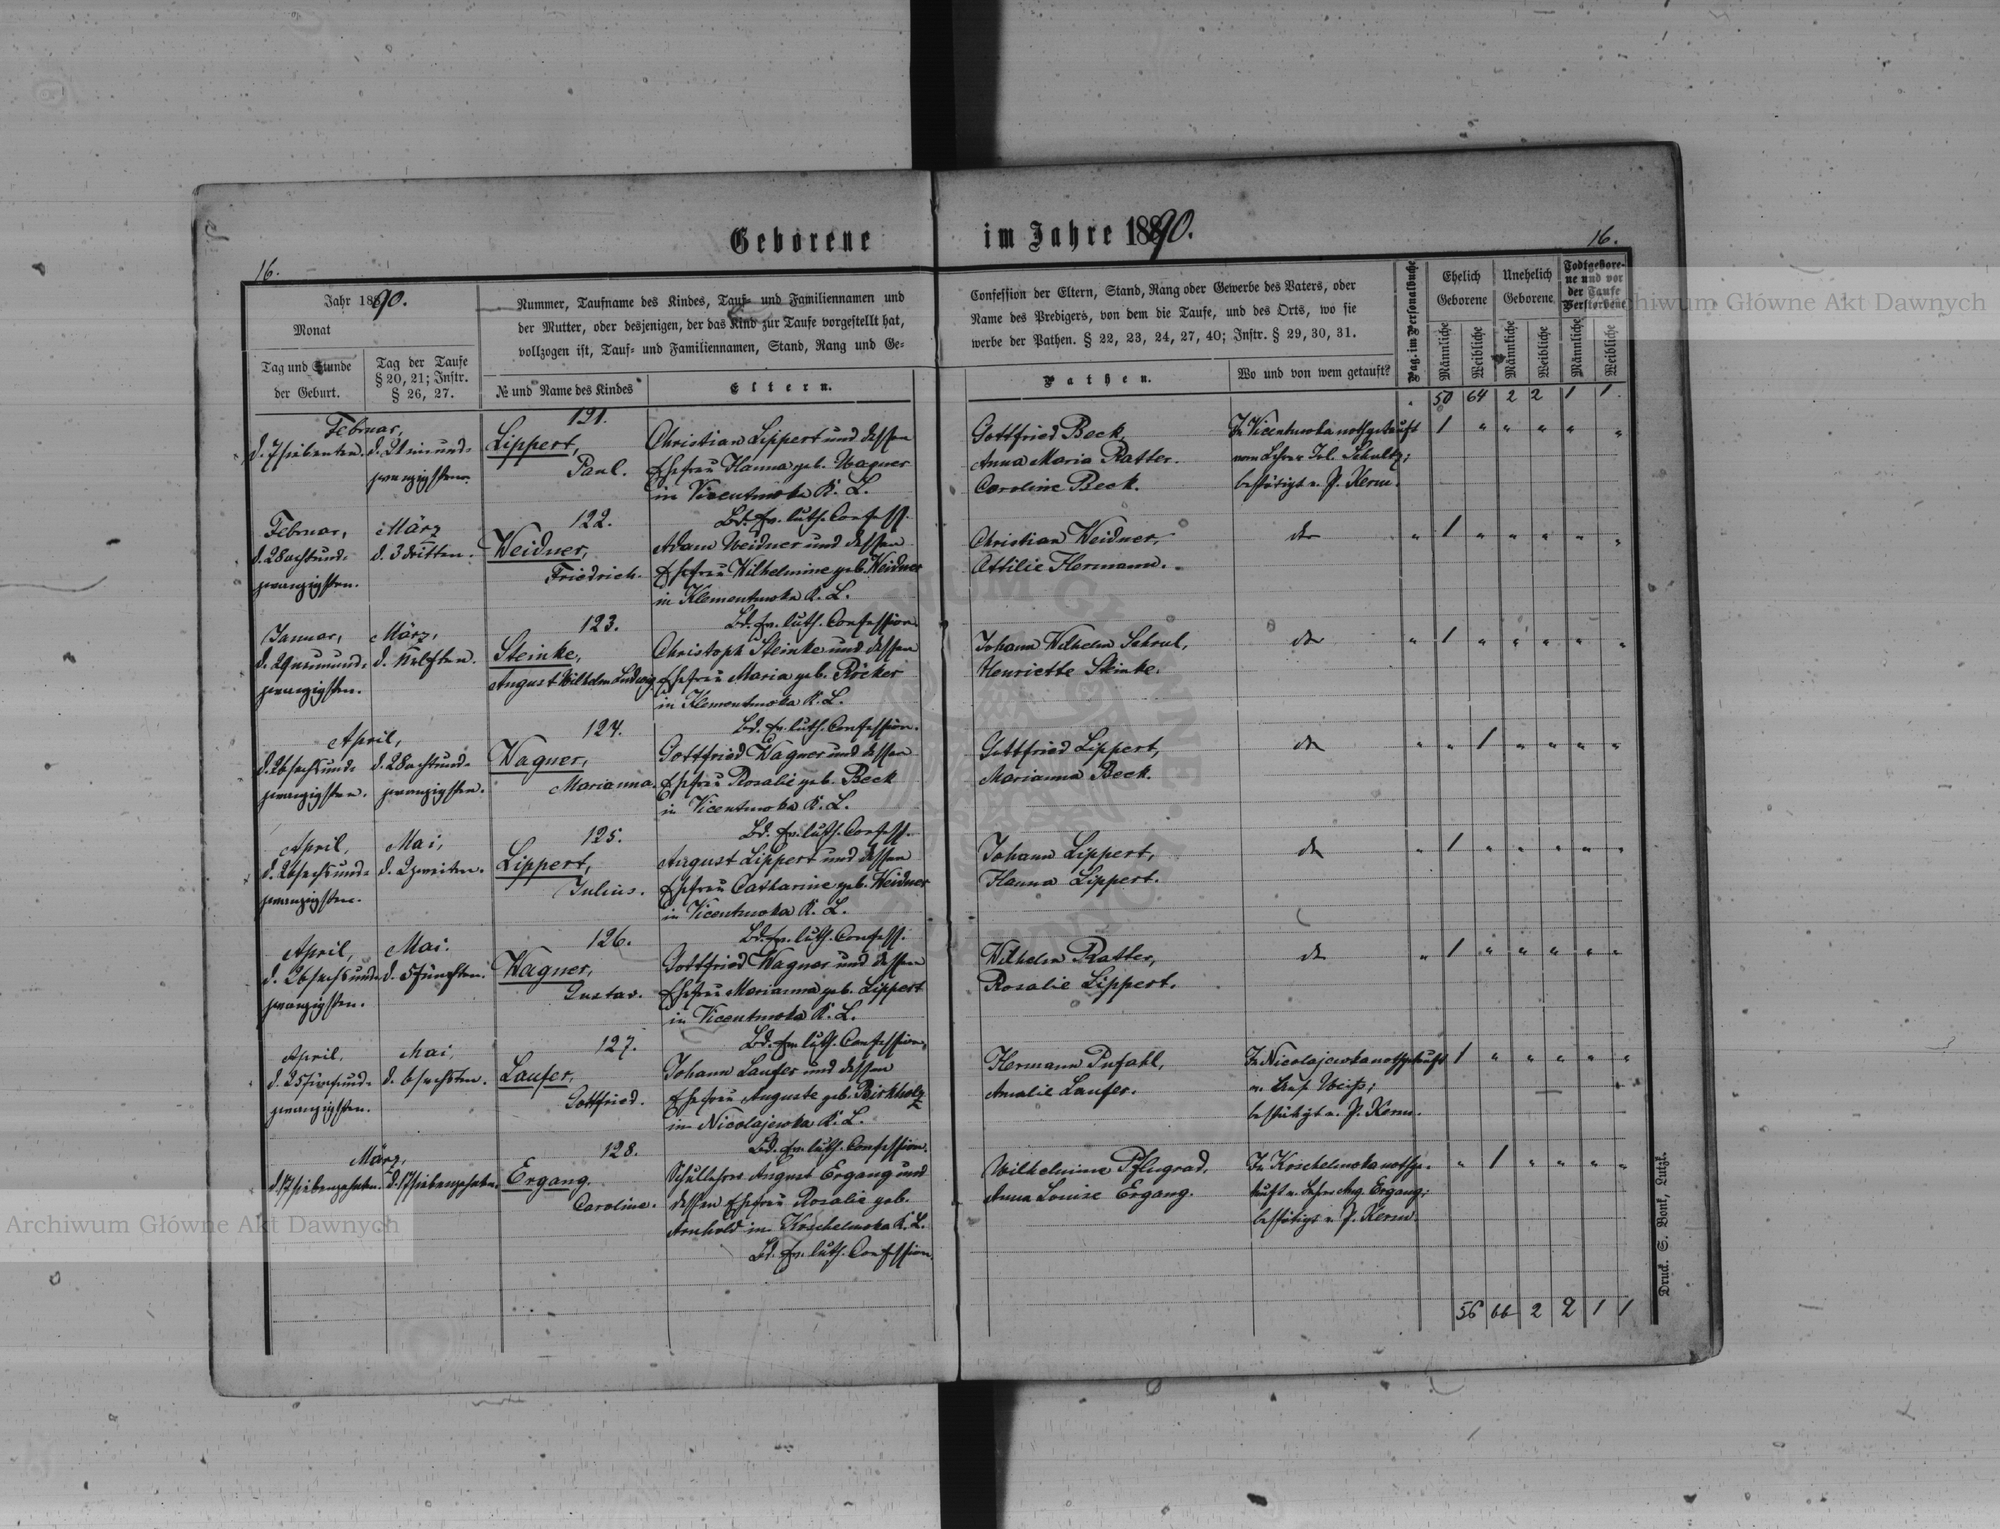 Geborene im Jahre 1890.
16.
16.
Jahr 1890.
Monat
Tag und Stunde
der Geburt.
Tag der Taufe
§ 20, 21; Instr.
§ 26, 27.
Nummer, Taufname des Kindes, Tauf- und Familiennamen und
der Mutter, oder desjenigen, der das Kind zur Taufe vorgestellt hat,
vollzogen ist, Tauf- und Familiennamen, Stand, Rang und Ge-
№ und Name des Kindes
Eltern.
Confession der Eltern, Stand, Rang oder Gewerbe des Vaters, oder
Name des Predigers, von dem die Taufe, und des Orts, wo sie
werbe der Pathen. § 22, 23, 24, 27, 40; Instr. § 29, 30, 31.
Pathen.
Wo und von wem getauft?
Pag. im Personalbuche
Ehelich
Geborene
Unehelich
Geborene
Todtgebore-
ne und vor
der Taufe
Verstorbene
Männliche
Weibliche
Männliche
Weibliche
Männliche
Weibliche
50 64 2 2 1 1
Februar,
d. 7 siebenten. d. 21 einund-
zwanzigsten.
121.
Lippert,
Paul.
Christian Lippert und dessen
Ehefrau Hanna geb. Wagner
in Vicentuwka K. L.
Bd. Ev. luth. Confess.
Gottfried Beck,
Anna Maria Ratter.
Caroline Beck.
In Vicentuwka nothgetauft
vom Lehrer Jul. Schultz;
bestätigt v. P. Kerm.
1
Februar,
d. 28 achtund-
zwanzigsten.
März
d. 3 dritten.
122.
Weidner,
Friedrich.
Adam Weidner und dessen
Ehefrau Wilhelmine geb. Weidner
in Klementuwka K. L.
Bd. Ev. luth. Confession
Christian Weidner,
Ottilie Hermann.
do
1
Januar,
d. 29 neunund-
zwanzigsten.
März,
d. 11 elften.
123.
Steinke,
August Wilhelm Ludwig
Christoph Steinke und dessen
Ehefrau Maria geb. Röcker
in Klementuwka K. L.
Bd. Ev. luth. Confession.
Johann Wilhelm Schrul,
Henriette Steinke.
do
1
April,
d. 26 sechsund-
zwanzigsten.
d. 28 achtund-
zwanzigsten.
124.
Wagner,
Marianna.
Gottfried Wagner und dessen
Ehefrau Rosalie geb. Beck
in Vicentuwka K. L.
Bd. Ev. luth. Confess.
Gottfried Lippert,
Marianna Beck.
do
1
April,
d. 26 sechsund-
zwanzigsten.
Mai,
d. 2 zweiten.
125.
Lippert,
Julius.
August Lippert und dessen
Ehefrau Catharine geb. Weidner
in Vicentuwka K. L.
Bd. Ev. luth. Confess.
Johann Lippert,
Hanna Lippert.
do
1
April,
d. 26 sechsund-
zwanzigsten.
Mai.
d. 5 fünften.
126.
Wagner,
Gustav.
Gottfried Wagner und dessen
Ehefrau Marianna geb. Lippert
in Vicentuwka K. L.
Bd. Ev. luth. Confession,
Wilhelm Ratter,
Rosalie Lippert.
do
1
April,
d. 25 fünfund-
zwanzigsten.
Mai,
d. 6 sechsten.
127.
Laufer,
Gottfried.
Johann Laufer und dessen
Ehefrau Auguste geb. Birkholz
in Nicolajewka K. L.
Bd. Ev. luth. Confession.
Hermann Pufahl,
Amalie Laufer.
In Nicolajewka nothgetauft
bestätigt v. P. Kerm.
1
März,
d. 17 siebenzehnten. d. 17 siebenzehnten.
128.
Ergang.
Caroline.
Schullehrer August Ergang und
dessen Ehefrau Rosalie geb.
Arnhold in Koschelewka K. L.
Bd. Ev. luth. Confession.
Wilhelmine Pflugrad,
Anna Louise Ergang.
In Koschelewka nothge-
tauft v. Lehrer Aug. Ergang;
bestätigt v. P. Kerm.
1
56 66 2 2 1 1
Druck. S. Bonk, Lutzk.
Archiwum Główne Akt Dawnych
Archiwum Główne Akt Dawnych